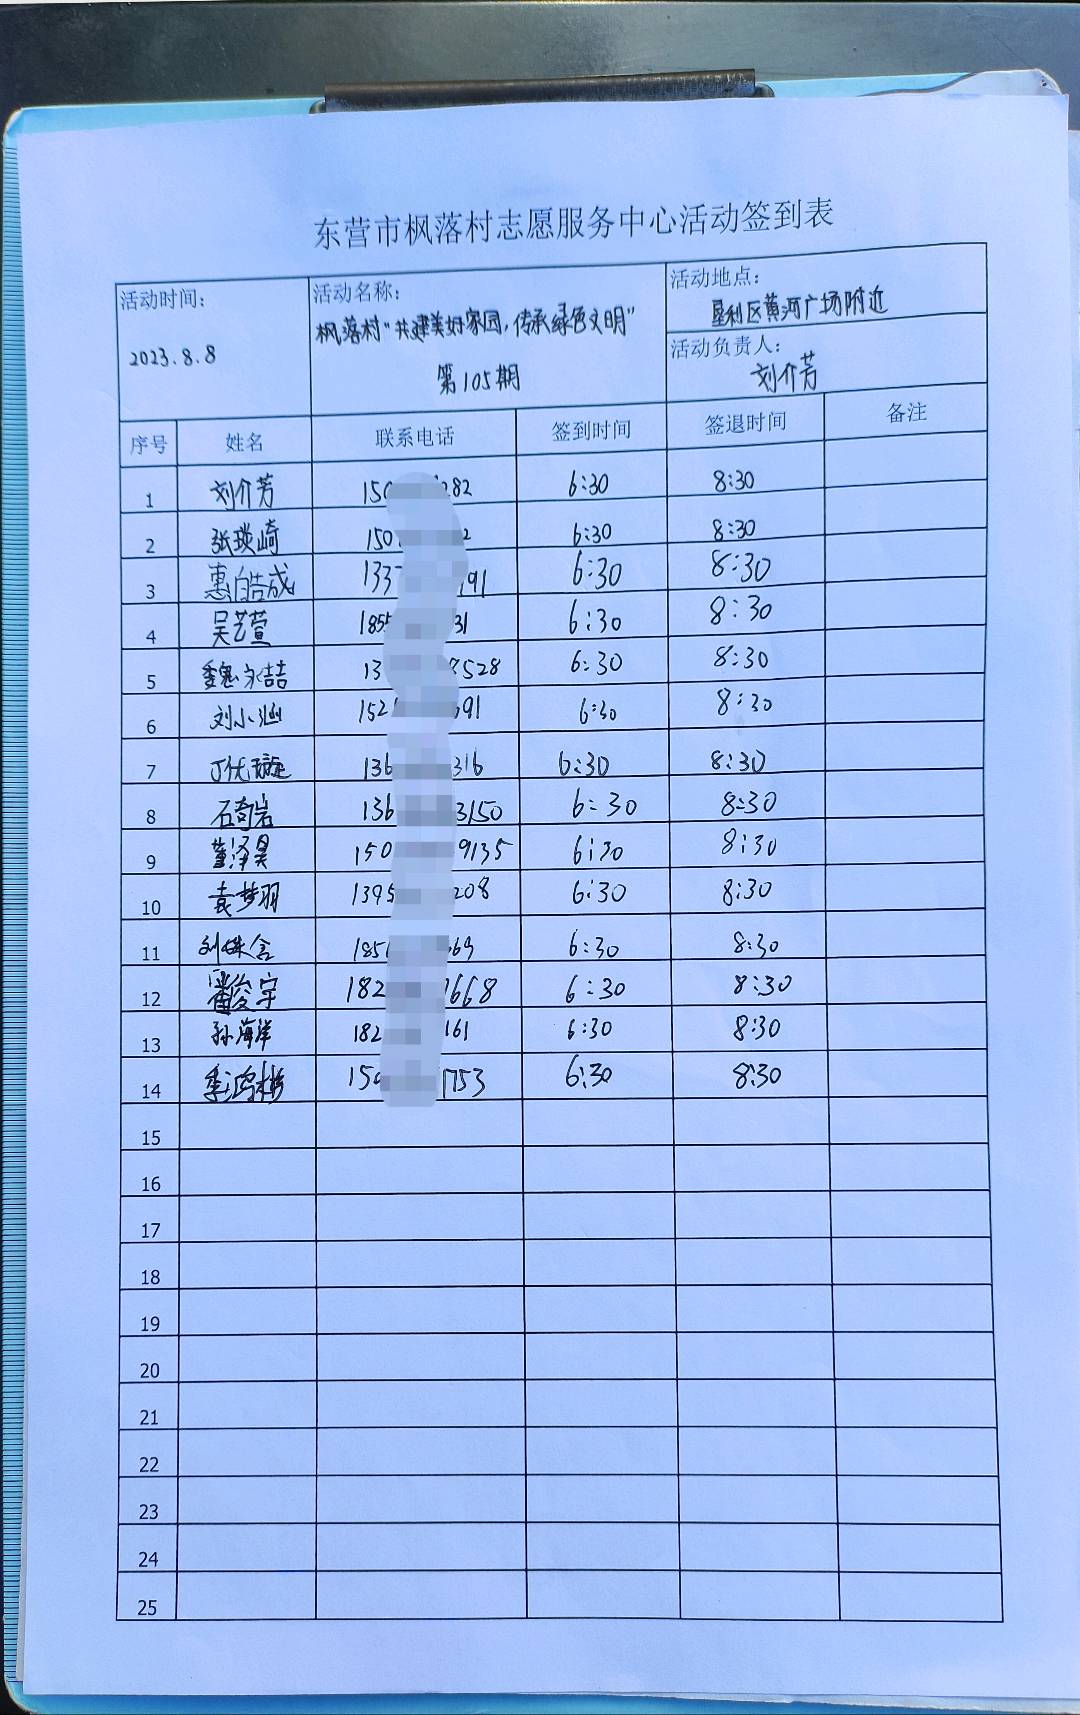 东营市枫落村志愿服务中心活动签到表
活动时间: 活动名称: 活动地点:
2023.8.8 枫落村"共建美好家园,传承绿色文明" 垦利区黄河广场附近
第105期
活动负责人:
刘介芳
序号 姓名 联系电话 签到时间 签退时间 备注
1 刘介芳 150 282 6:30 8:30
2 张瑛崎 150 2 6:30 8:30
3 惠皓成 133 191 6:30 8:30
4 吴艺萱 1855 31 6:30 8:30
5 魏永喆 13 8528 6:30 8:30
6 刘小涵 152 691 6:30 8:30
7 丁优璇 136 316 6:30 8:30
8 石奇岩 136 3150 6:30 8:30
9 董泽昊 150 9135 6:30 8:30
10 袁梦羽 1395 208 6:30 8:30
11 刘姝含 185 669 6:30 8:30
12 潘俊宇 182 1668 6:30 8:30
13 孙海洋 182 161 6:30 8:30
14 150 1753 6:30 8:30
15
16
17
18
19
20
21
22
23
24
25